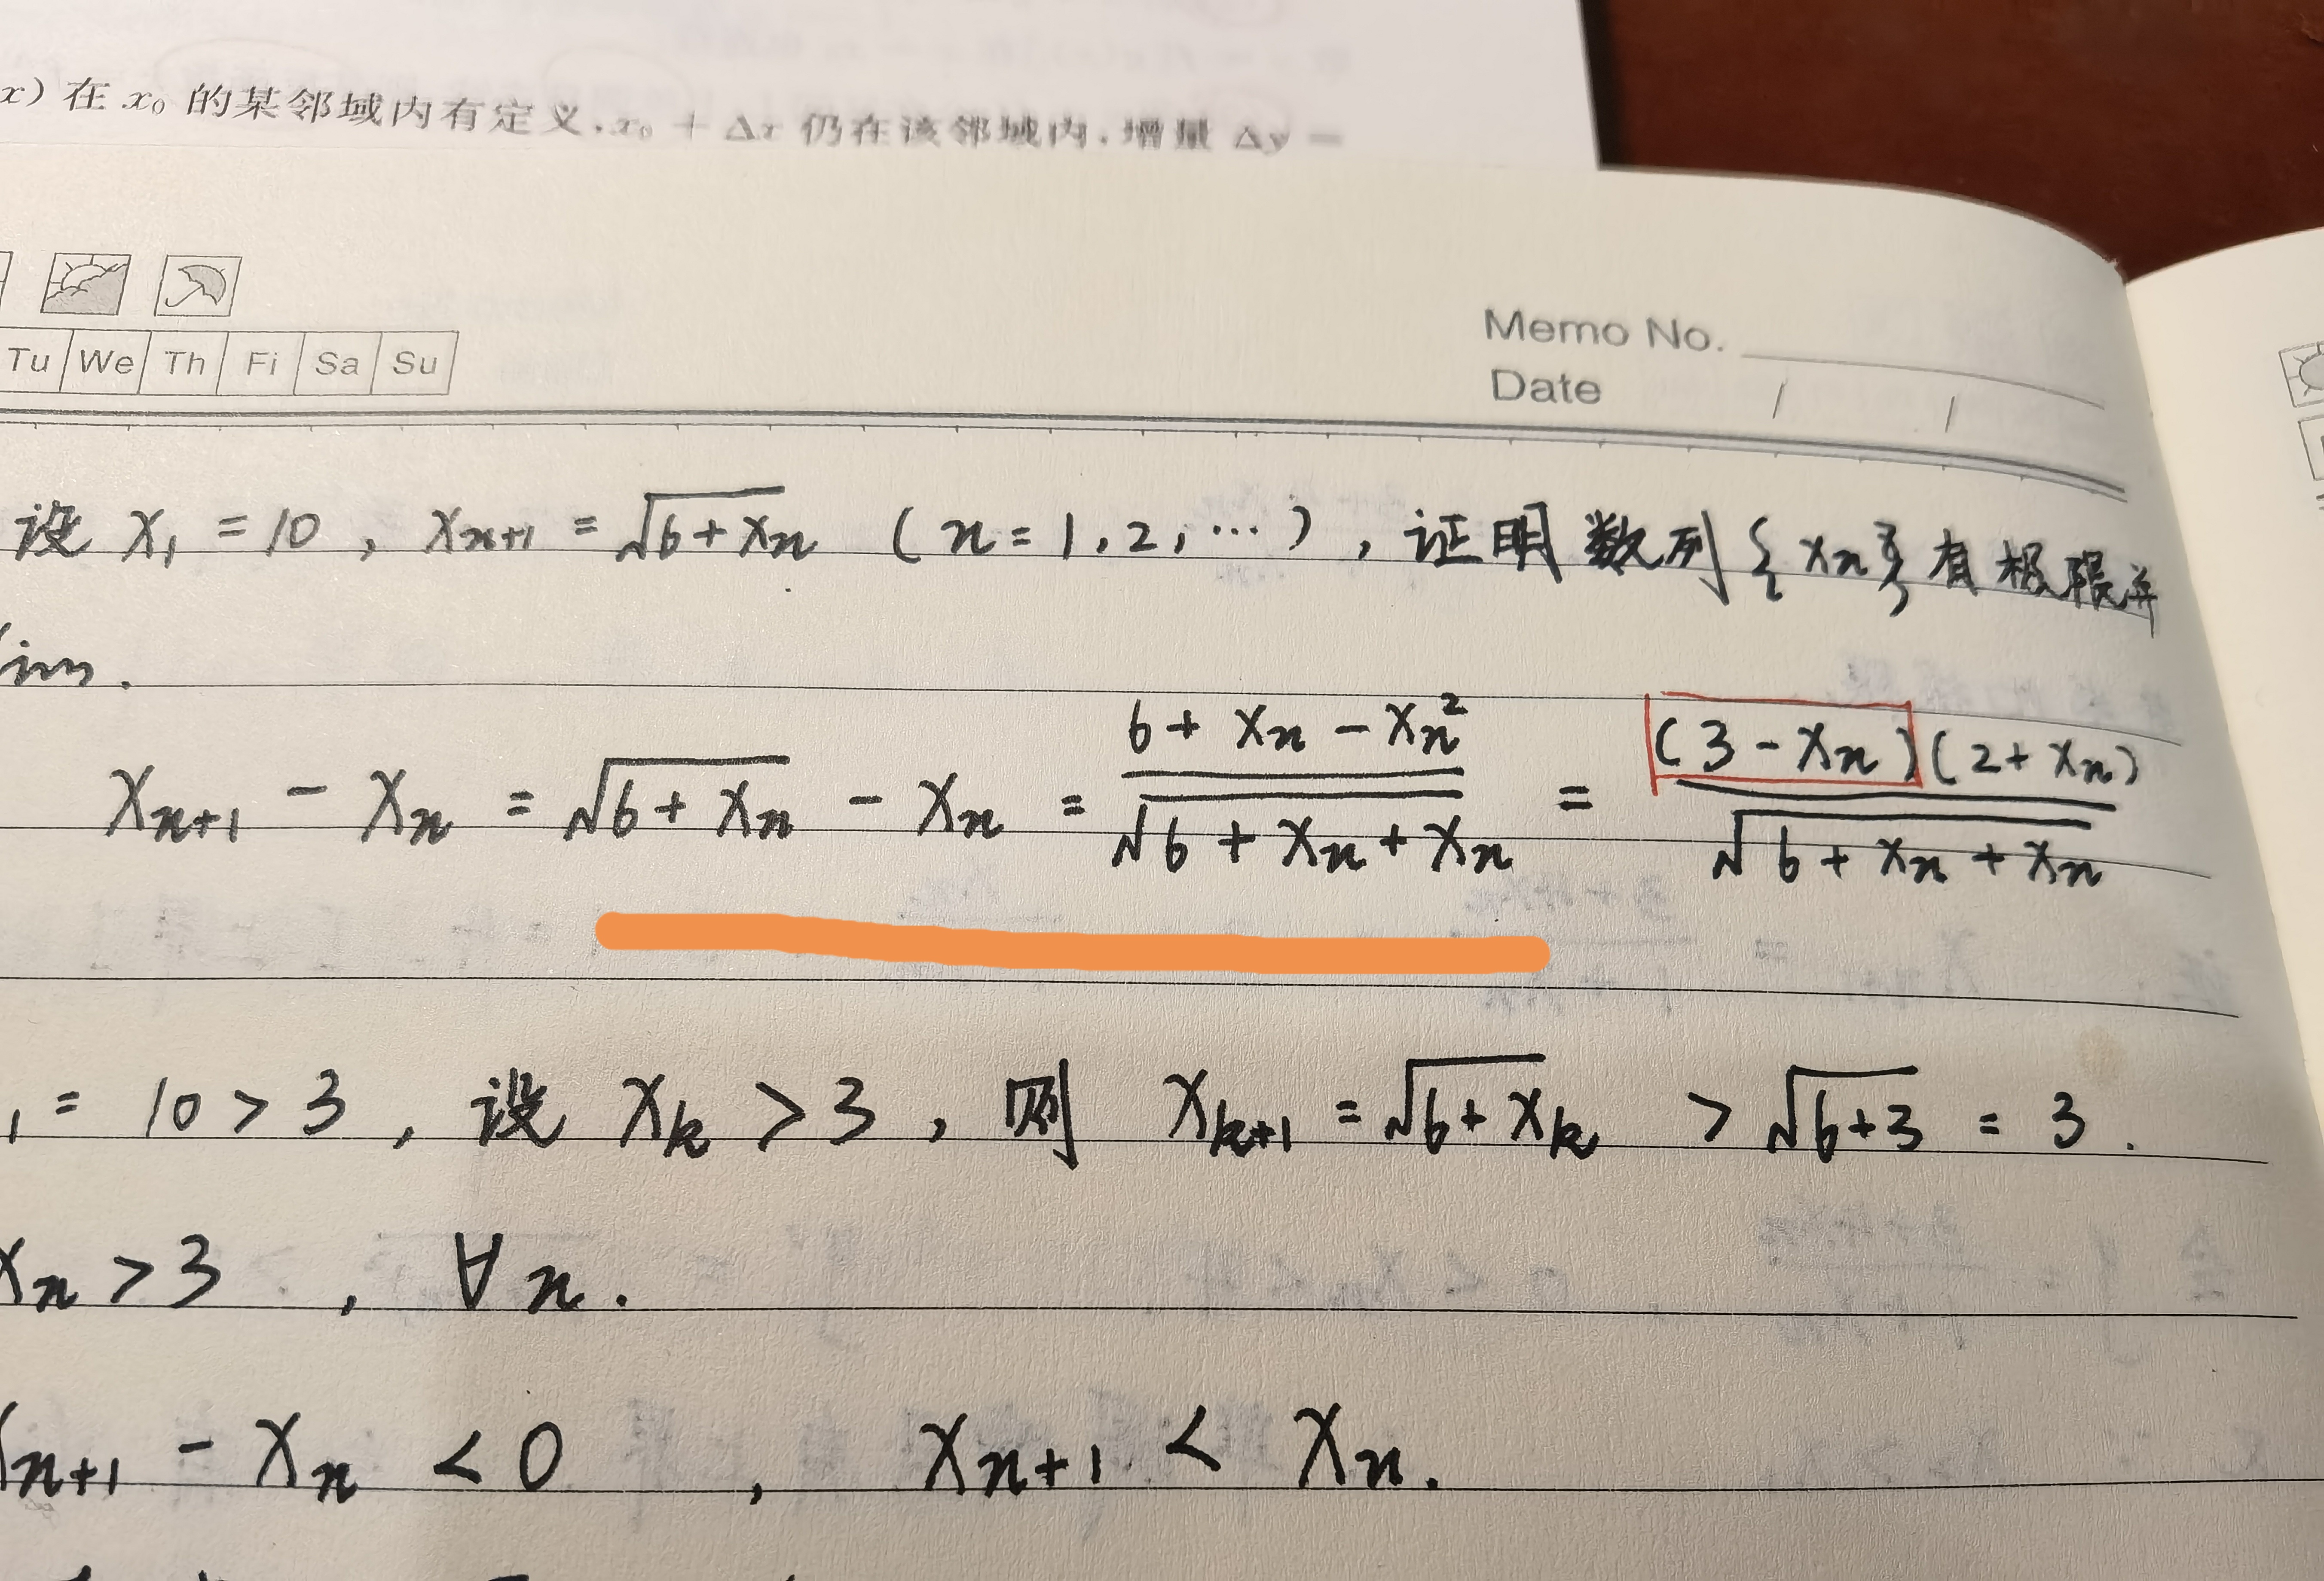 x) 在 x₀ 的某邻域内有定义,x₀ + Δx 仍在该邻域内.增量 Δy =
Tu We Th Fi Sa Su
Memo No.
Date / /
设 x₁ = 10 , xₙ₊₁ = √(6+xₙ) ( n = 1, 2, ⋯ ) , 证明数列 {xₙ} 有极限并
lim.
xₙ₊₁ - xₙ = √(6+xₙ) - xₙ = (6 + xₙ - xₙ²)/(√(6 + xₙ + xₙ)) = ((3 - xₙ)(2 + xₙ))/(√(6 + xₙ + xₙ))
₁ = 10 > 3 , 设 xₖ > 3 , 则 xₖ₊₁ = √(6+xₖ) > √(6+3) = 3 .
xₙ > 3 , ∀ n .
xₙ₊₁ - xₙ < 0 , xₙ₊₁ < xₙ .